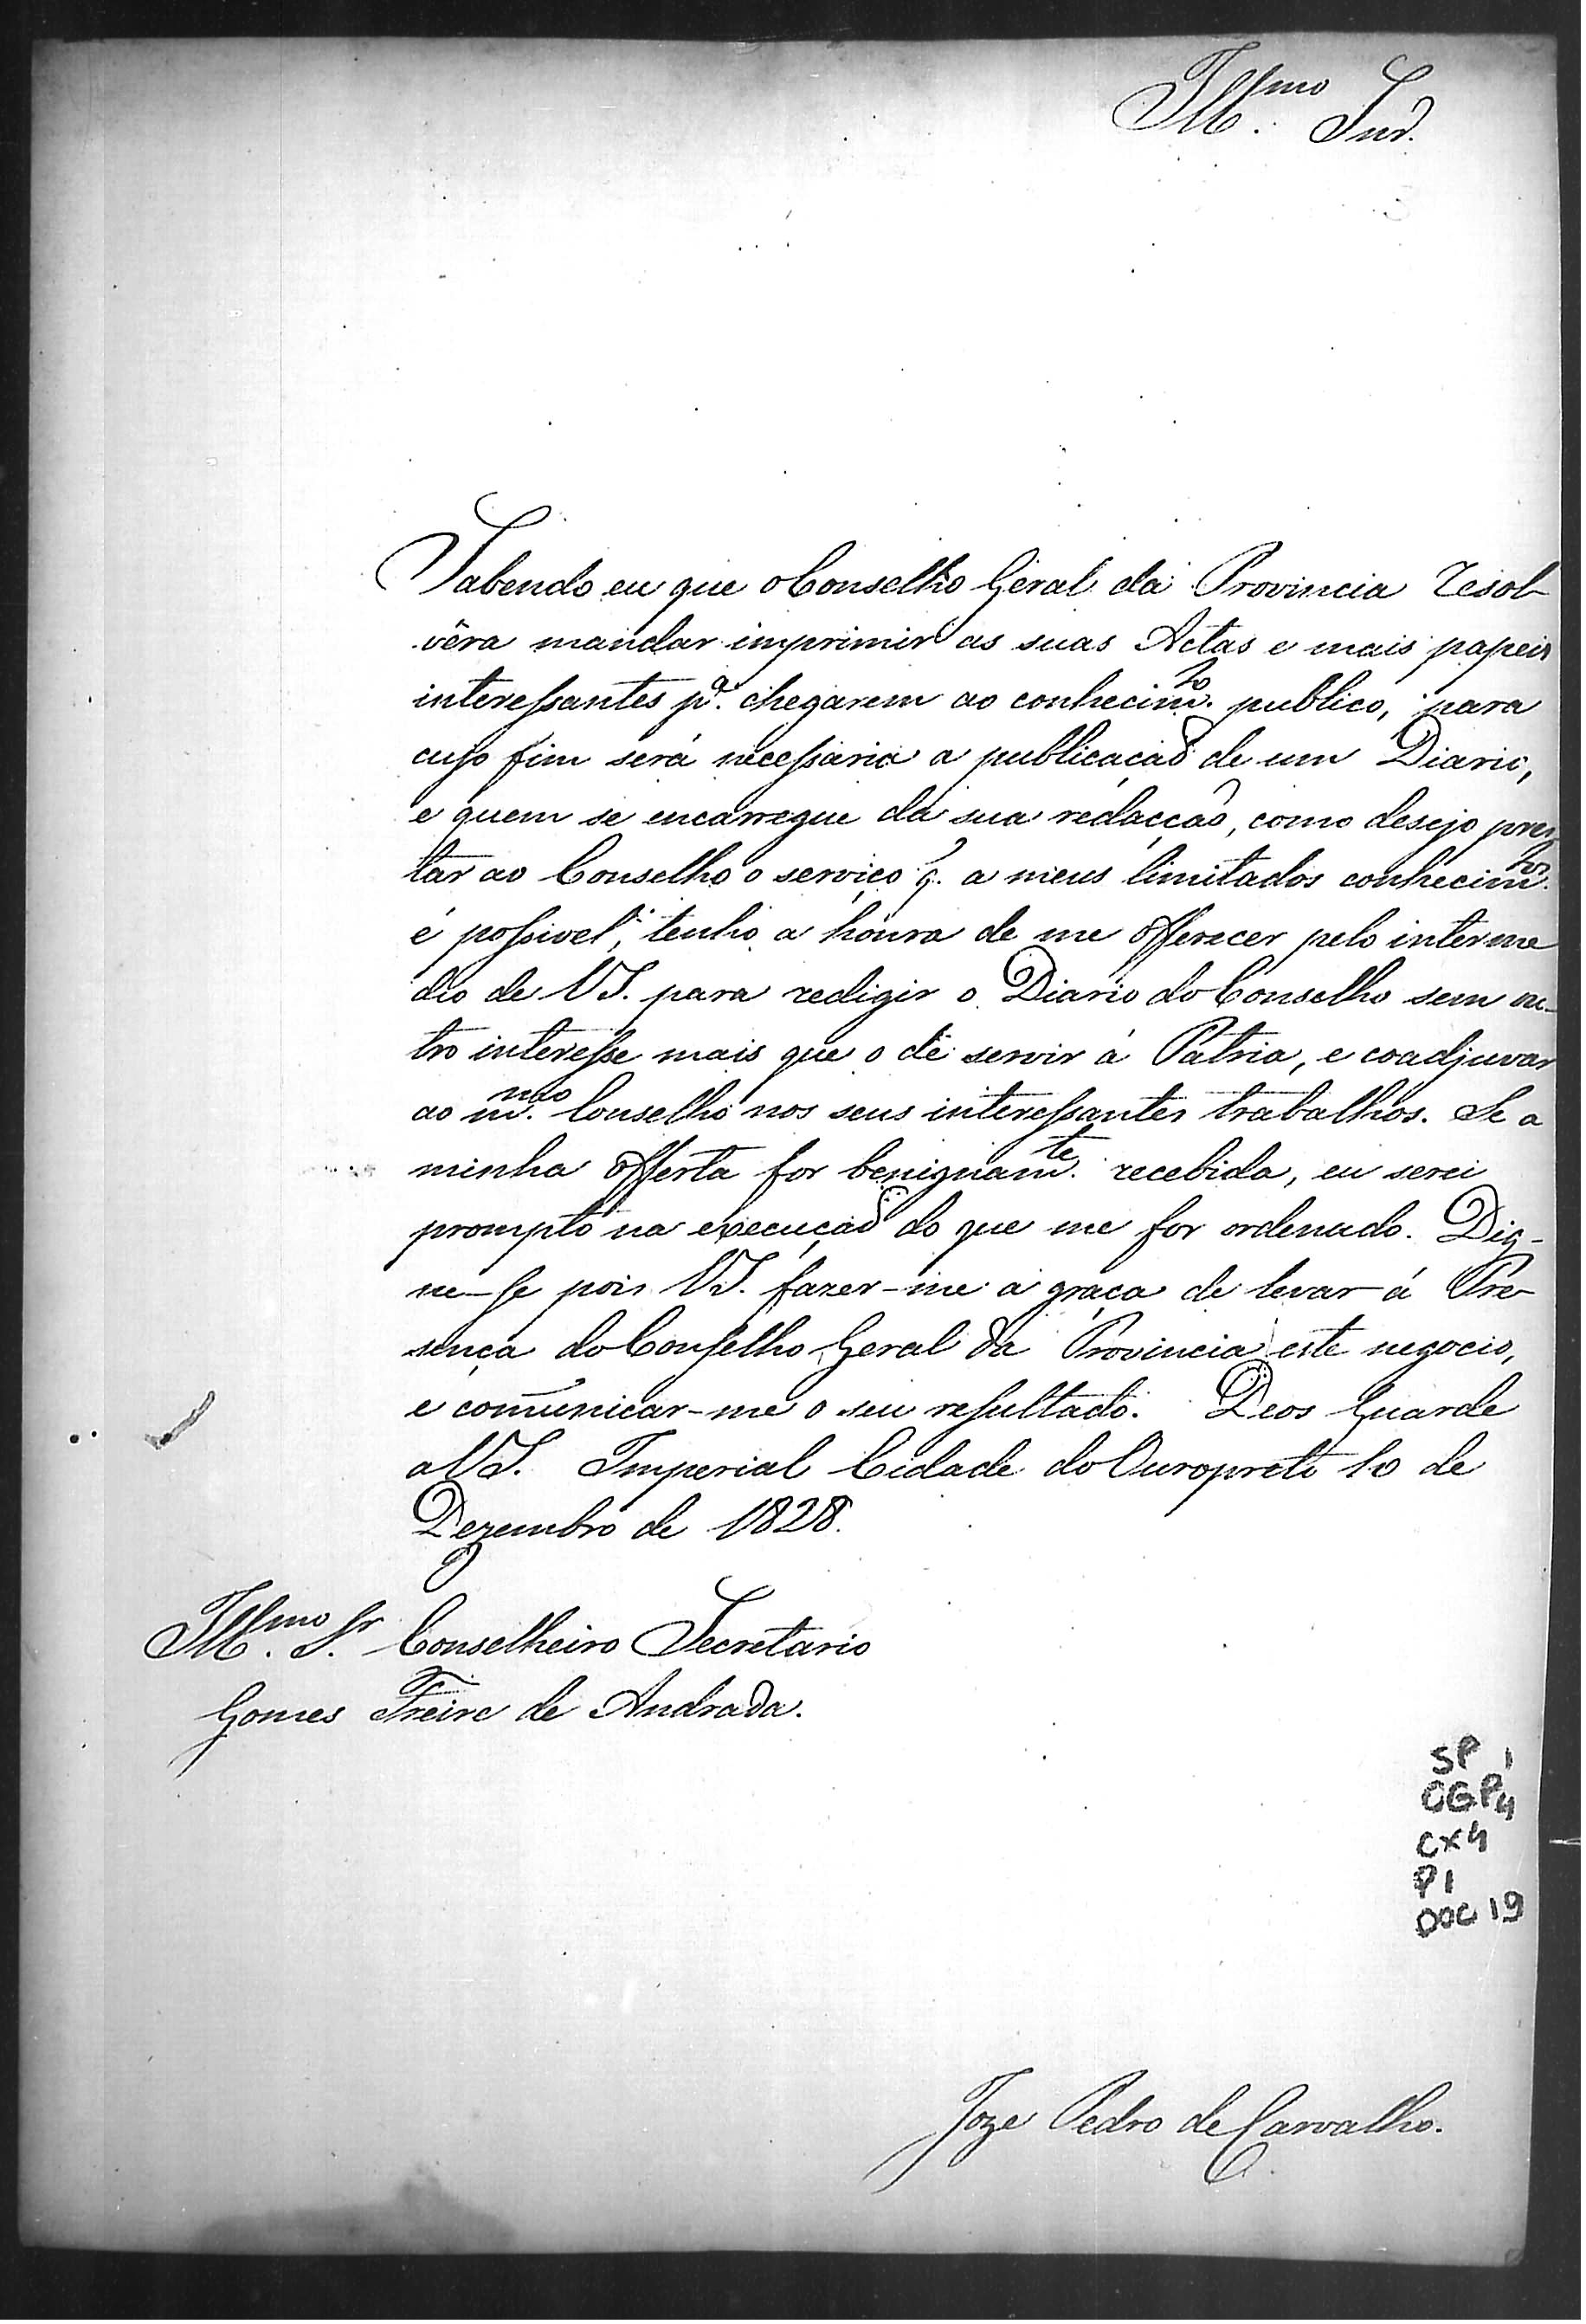 Ill.mo Snr.
Sabendo eu que o Conselho Geral da Provincia resol-
vêra mandar imprimir as suas Actas e mais papeis
interessantes p.a chegarem ao conhecim.to publico, para
cujo fim será necessaria a publicação de um Diario,
e quem se encarregue da sua redacção, como desejo pres-
tar ao Conselho o serviço q. a meus limitados conhecim.tos
é possivel, tenho a honra de me offerecer pelo interme
dio de VS. para redigir o Diario do Conselho sem ou-
tro interesse mais que o de servir á Patria, e coadjuvar
ao m.mo Conselho nos seus interessantes trabalhos. Se a
minha offerta for benignam.te recebida, eu serei
prompto na execução do que me for ordenado. Dig-
ne-se pois VS. fazer-me a graça de levar á Pre-
sença do Conselho Geral da Provincia este negocio,
e com̃unicar-me o seu resultado. Deos Guarde
a VS. Imperial Cidade do Ouropreto 10 de
Dezembro de 1828.
Ill.mo Sr. Conselheiro Secretario
Gomes Freire de Andrada.
SP 1
CGP4
CX4
P1
DOC 19
Joze Pedro de Carvalho.